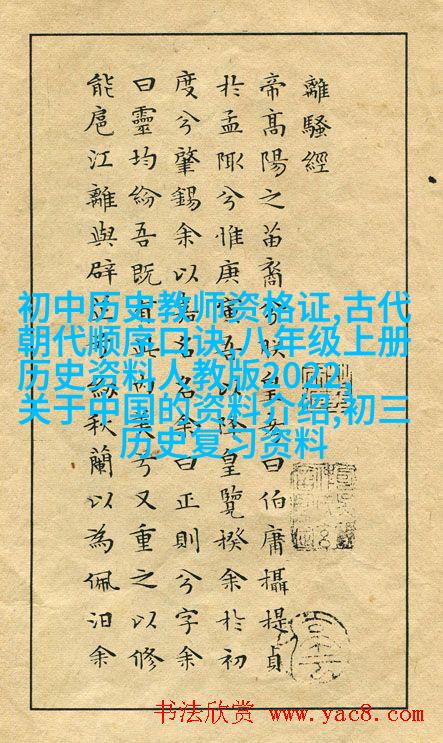 離騷經
帝高陽之苗裔兮朕皇考曰伯庸攝提貞
於孟陬兮惟庚寅吾以降皇覽揆余於初
度兮肇錫余以嘉名名余曰正則兮字余
曰靈均紛吾既有此內美兮又重之以修
能扈江離與辟芷兮紉秋蘭以為佩汨余
初中历史教师资格证,古代
朝代顺序口诀,八年级上册
历史资料人教版2022,
关于中国的资料介绍,初三
历史复习资料
书法欣赏 www.yac8.com